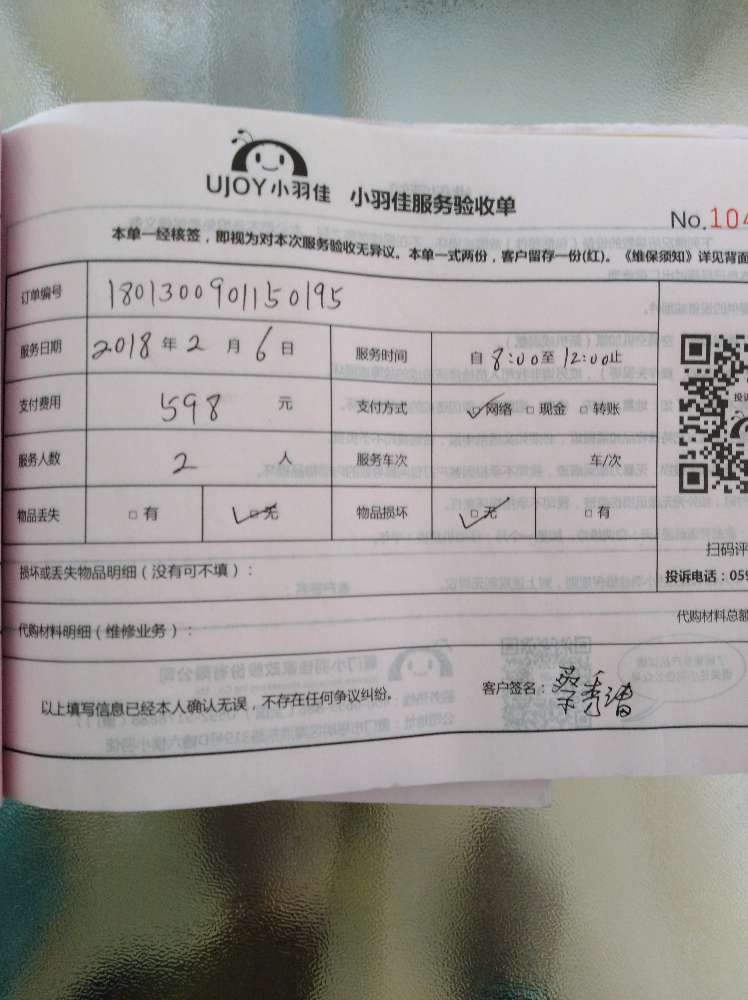 UJOY小羽佳 小羽佳服务验收单
No.104
本单一经核签，即视为对本次服务验收无异议。本单一式两份，客户留存一份(红)。《维保须知》详见背面
订单编号 1801300901150195
服务日期 2018年2月6日 服务时间 自8:00至12:00止
支付费用 598元 支付方式 网络 现金 转账
服务人数 2人 服务车次 车/次
物品丢失 有 无 物品损坏 无 有
投诉
扫码评
投诉电话：059
损坏或丢失物品明细（没有可不填）：
代购材料总额
代购材料明细（维修业务）：
以上填写信息已经本人确认无误，不存在任何争议纠纷。 客户签名：